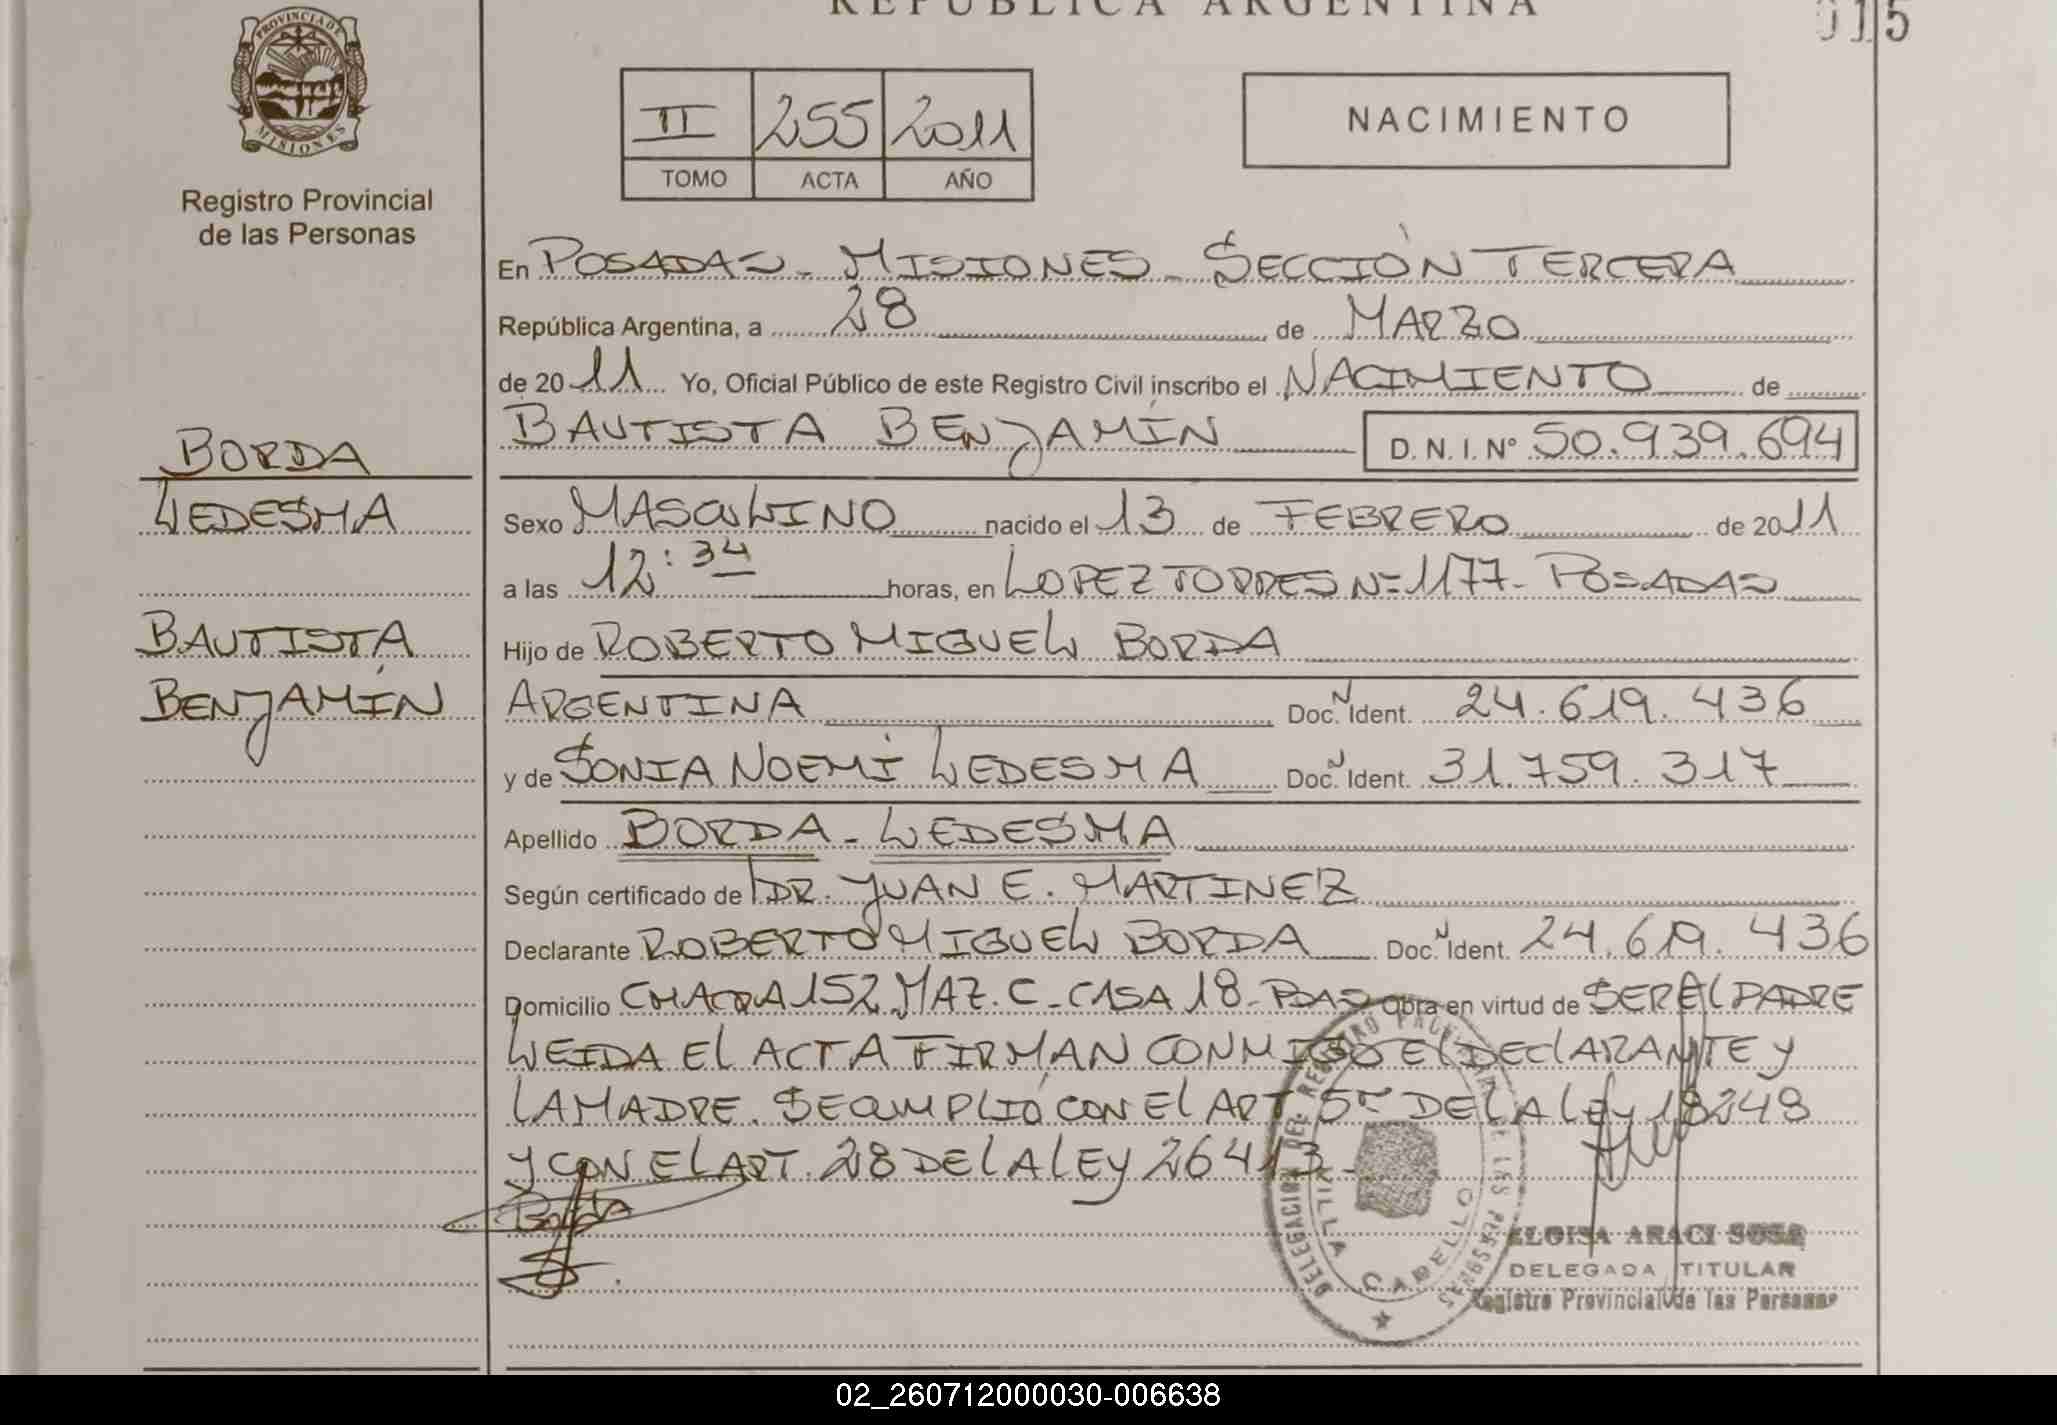 REPUBLICA ARGENTINA
015
PROVINCIA DE
MISIONES
Registro Provincial
de las Personas
II 255 2011
TOMO ACTA AÑO
NACIMIENTO
En POSADAS - MISIONES - SECCIÓN TERCERA
República Argentina, a 28 de MARZO
de 2011 Yo, Oficial Público de este Registro Civil inscribo el NACIMIENTO de
BAUTISTA BENJAMÍN D. N. I. Nº 50.939.694
BORDA
LEDESMA
BAUTISTA
BENJAMÍN
Sexo MASCULINO nacido el 13 de FEBRERO de 2011
a las 12:34 horas, en LOPEZ TORRES Nº 1177 - POSADAS
Hijo de ROBERTO MIGUEL BORDA
ARGENTINA DocN. Ident. 24.619.436
y de SONIA NOEMÍ LEDESMA DocN. Ident. 31.759.317
Apellido BORDA - LEDESMA
Según certificado de DR. JUAN E. MARTINEZ
Declarante ROBERTO MIGUEL BORDA DocN. Ident. 24.619.436
Domicilio CHACRA 152 MAZ. C - CASA 18 - PDAS Obra en virtud de SER EL PADRE
LEIDA EL ACTA FIRMAN CONMIGO EL DECLARANTE Y
LA MADRE. SE CUMPLIÓ CON EL ART 5to DE LA LEY 18248
Y CON EL ART. 28 DE LA LEY 26413 -
Borda
DELEGACION DEL REGISTRO PROVINCIAL DE LAS PERSONAS
VILLA CABELLO
ELOISA ARACI SOSA
DELEGADA TITULAR
Registro Provincial de las Personas
02_260712000030-006638